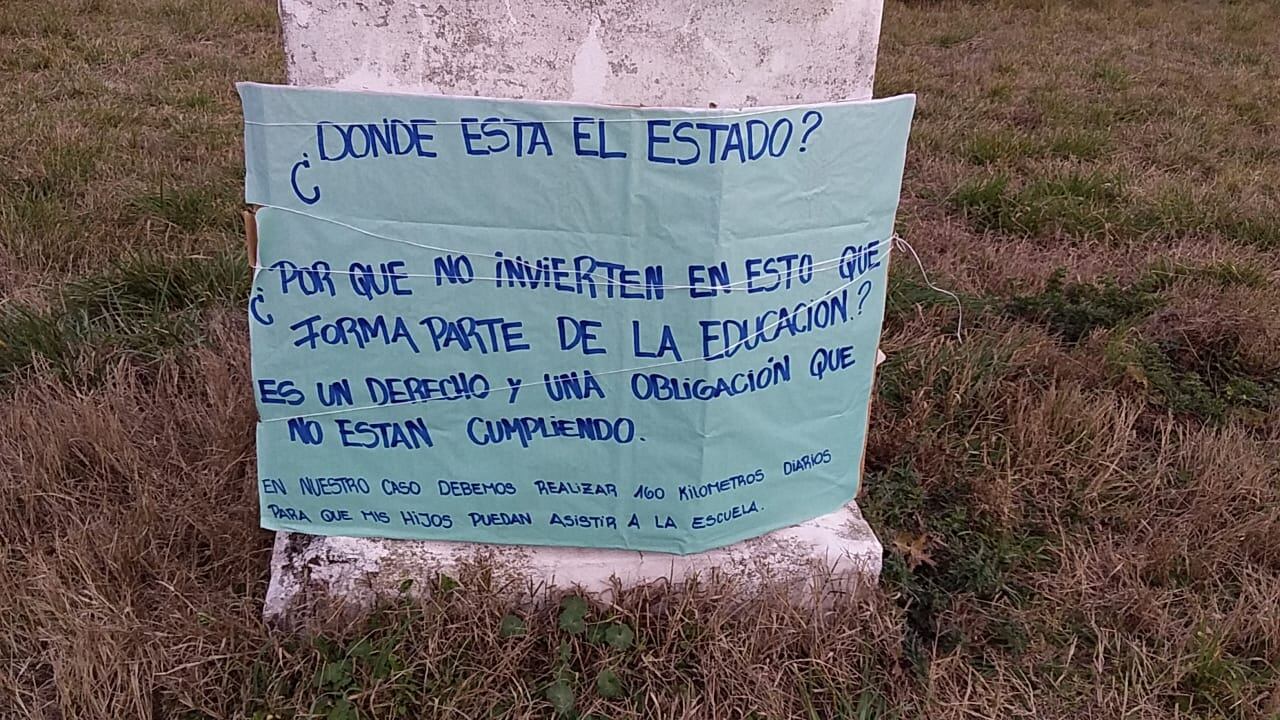 ¿DONDE ESTA EL ESTADO?
¿POR QUE NO INVIERTEN EN ESTO QUE
FORMA PARTE DE LA EDUCACIÓN.?
ES UN DERECHO Y UNA OBLIGACIÓN QUE
NO ESTAN CUMPLIENDO.
EN NUESTRO CASO DEBEMOS REALIZAR 160 KILOMETROS DIARIOS
PARA QUE MIS HIJOS PUEDAN ASISTIR A LA ESCUELA.